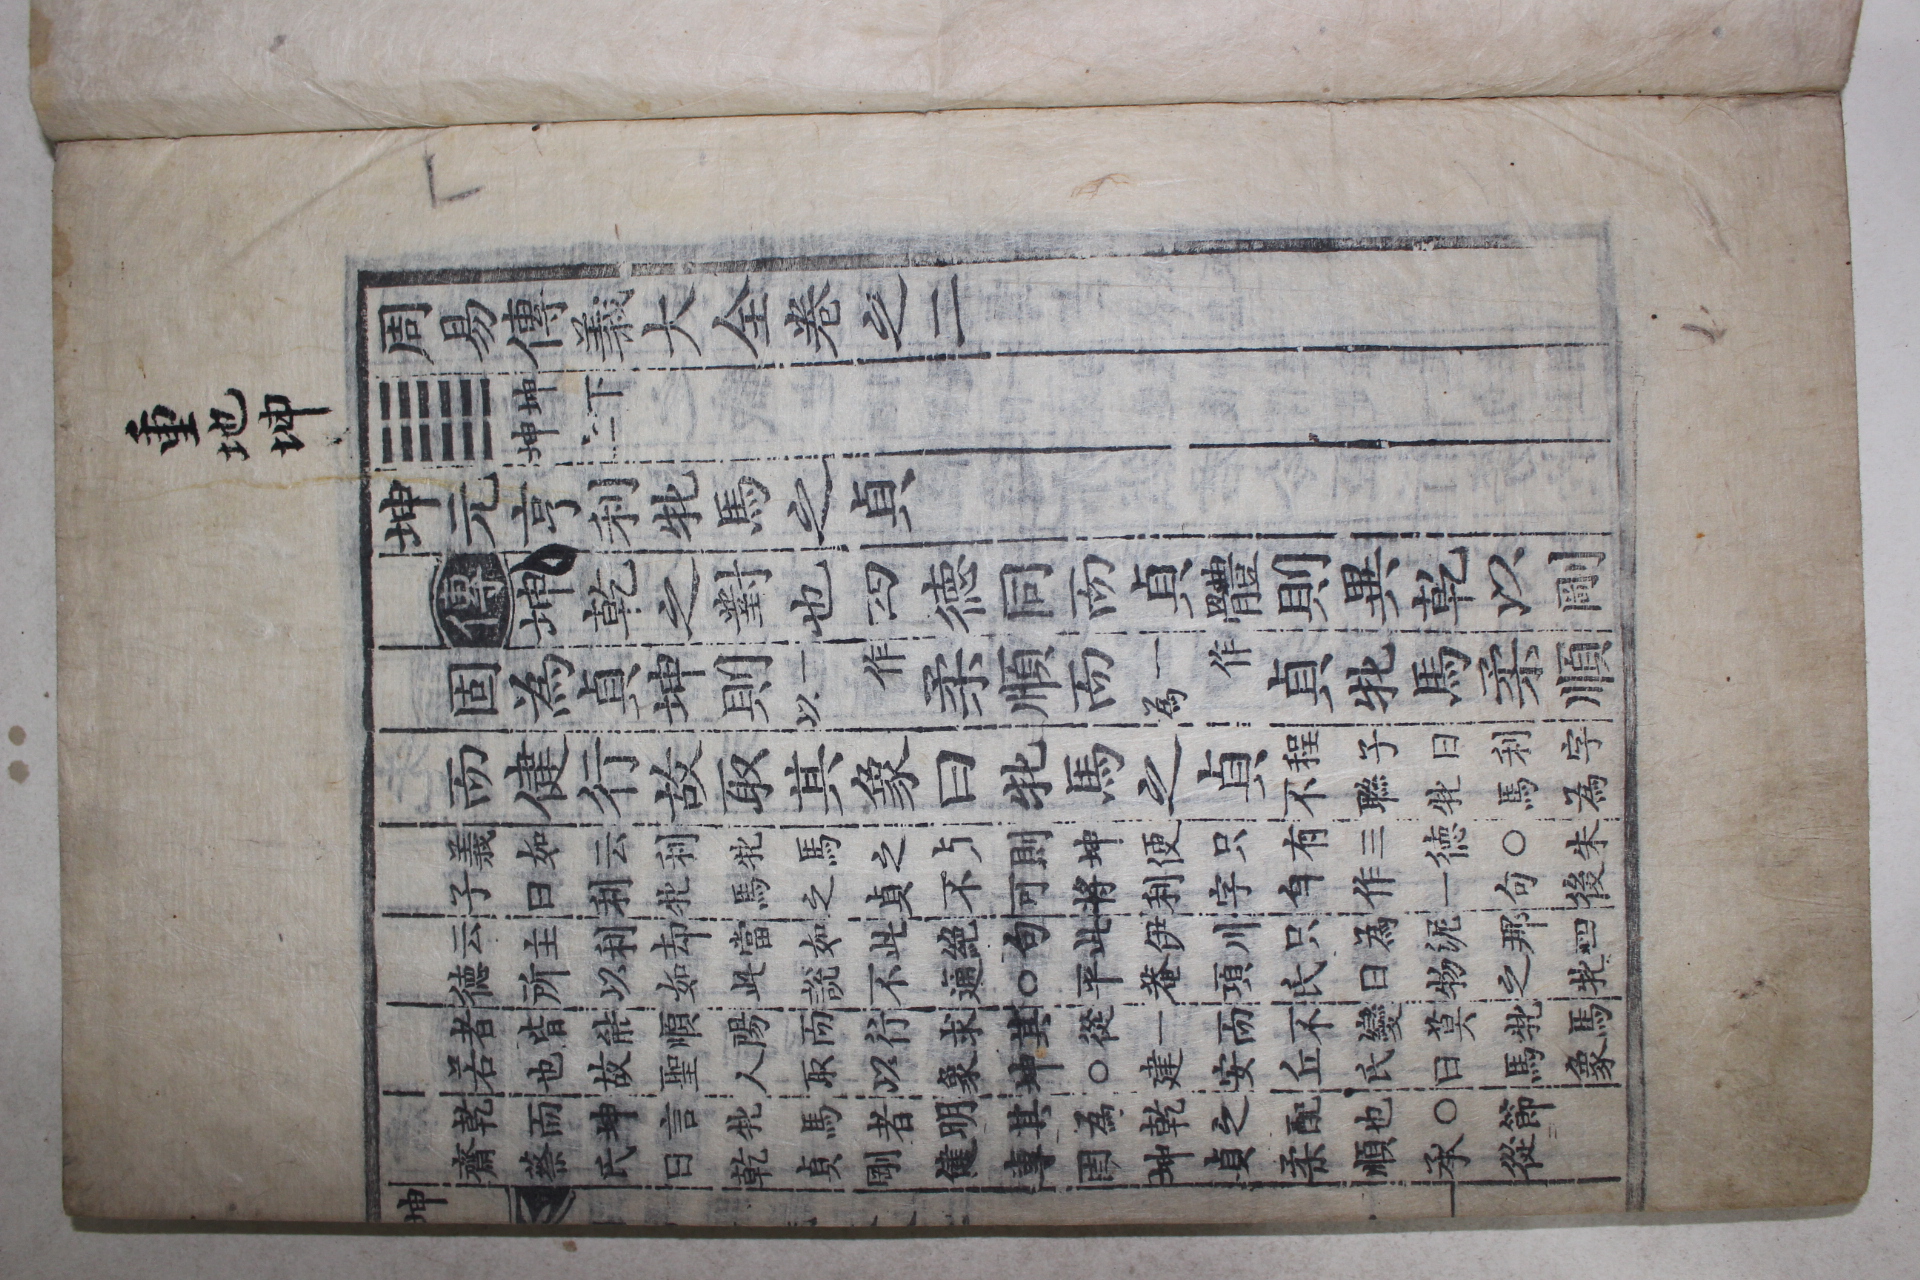 重地坤
周易傳義大全卷之二
䷁坤下
坤上
坤元亨利牝馬之貞
傳坤乾之對也四德同而貞體則異乾以剛
固為貞坤則一作以柔順而一作為貞牝馬柔順
而健行故取其象曰牝馬之貞程子曰利字
不聯牝馬為
義如云利牝馬之則坤便只有三德○朱
子曰利牝馬之貞不可將利字自作一句後
云主利却當如此絶句此伊川只為泥那四
德所以如此說不通○平菴項氏曰物之牝
者皆能順陽而行求其從一而不變莫牝馬
若也故聖人取以象坤○建安丘氏曰馬象
乾而坤言牝馬者明其為乾之配也○節
齋蔡氏曰乾貞剛健專固坤貞柔順承從
坤
一